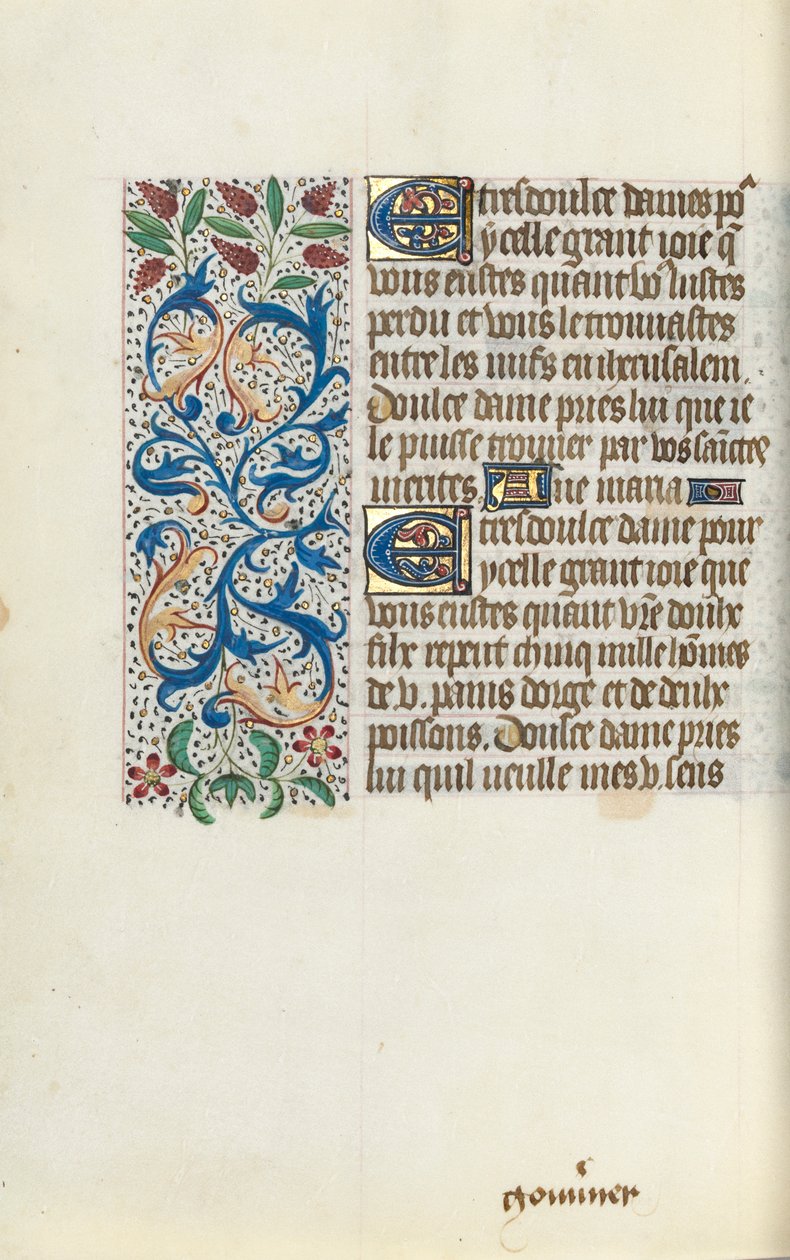 E tresdoulce dames po᷑
ycelle grant ioie q̄
vous eustes quant vo᷑ leustes
perdu et vous le trouuastes
entre les iuifs en iherusalem.
Doulce dame pries lui que ie
le puisse trouuer par vos sainctes
merites. Aue maria
E tresdoulce dame pour
ycelle grant ioie que
vous eustes quant vr̄e doulx
filx repeut chinq mille hōmes
de v. pains dorge et de deulx
poissons. Doulce dame pries
lui quil ueulle mes v. sens
gouūner